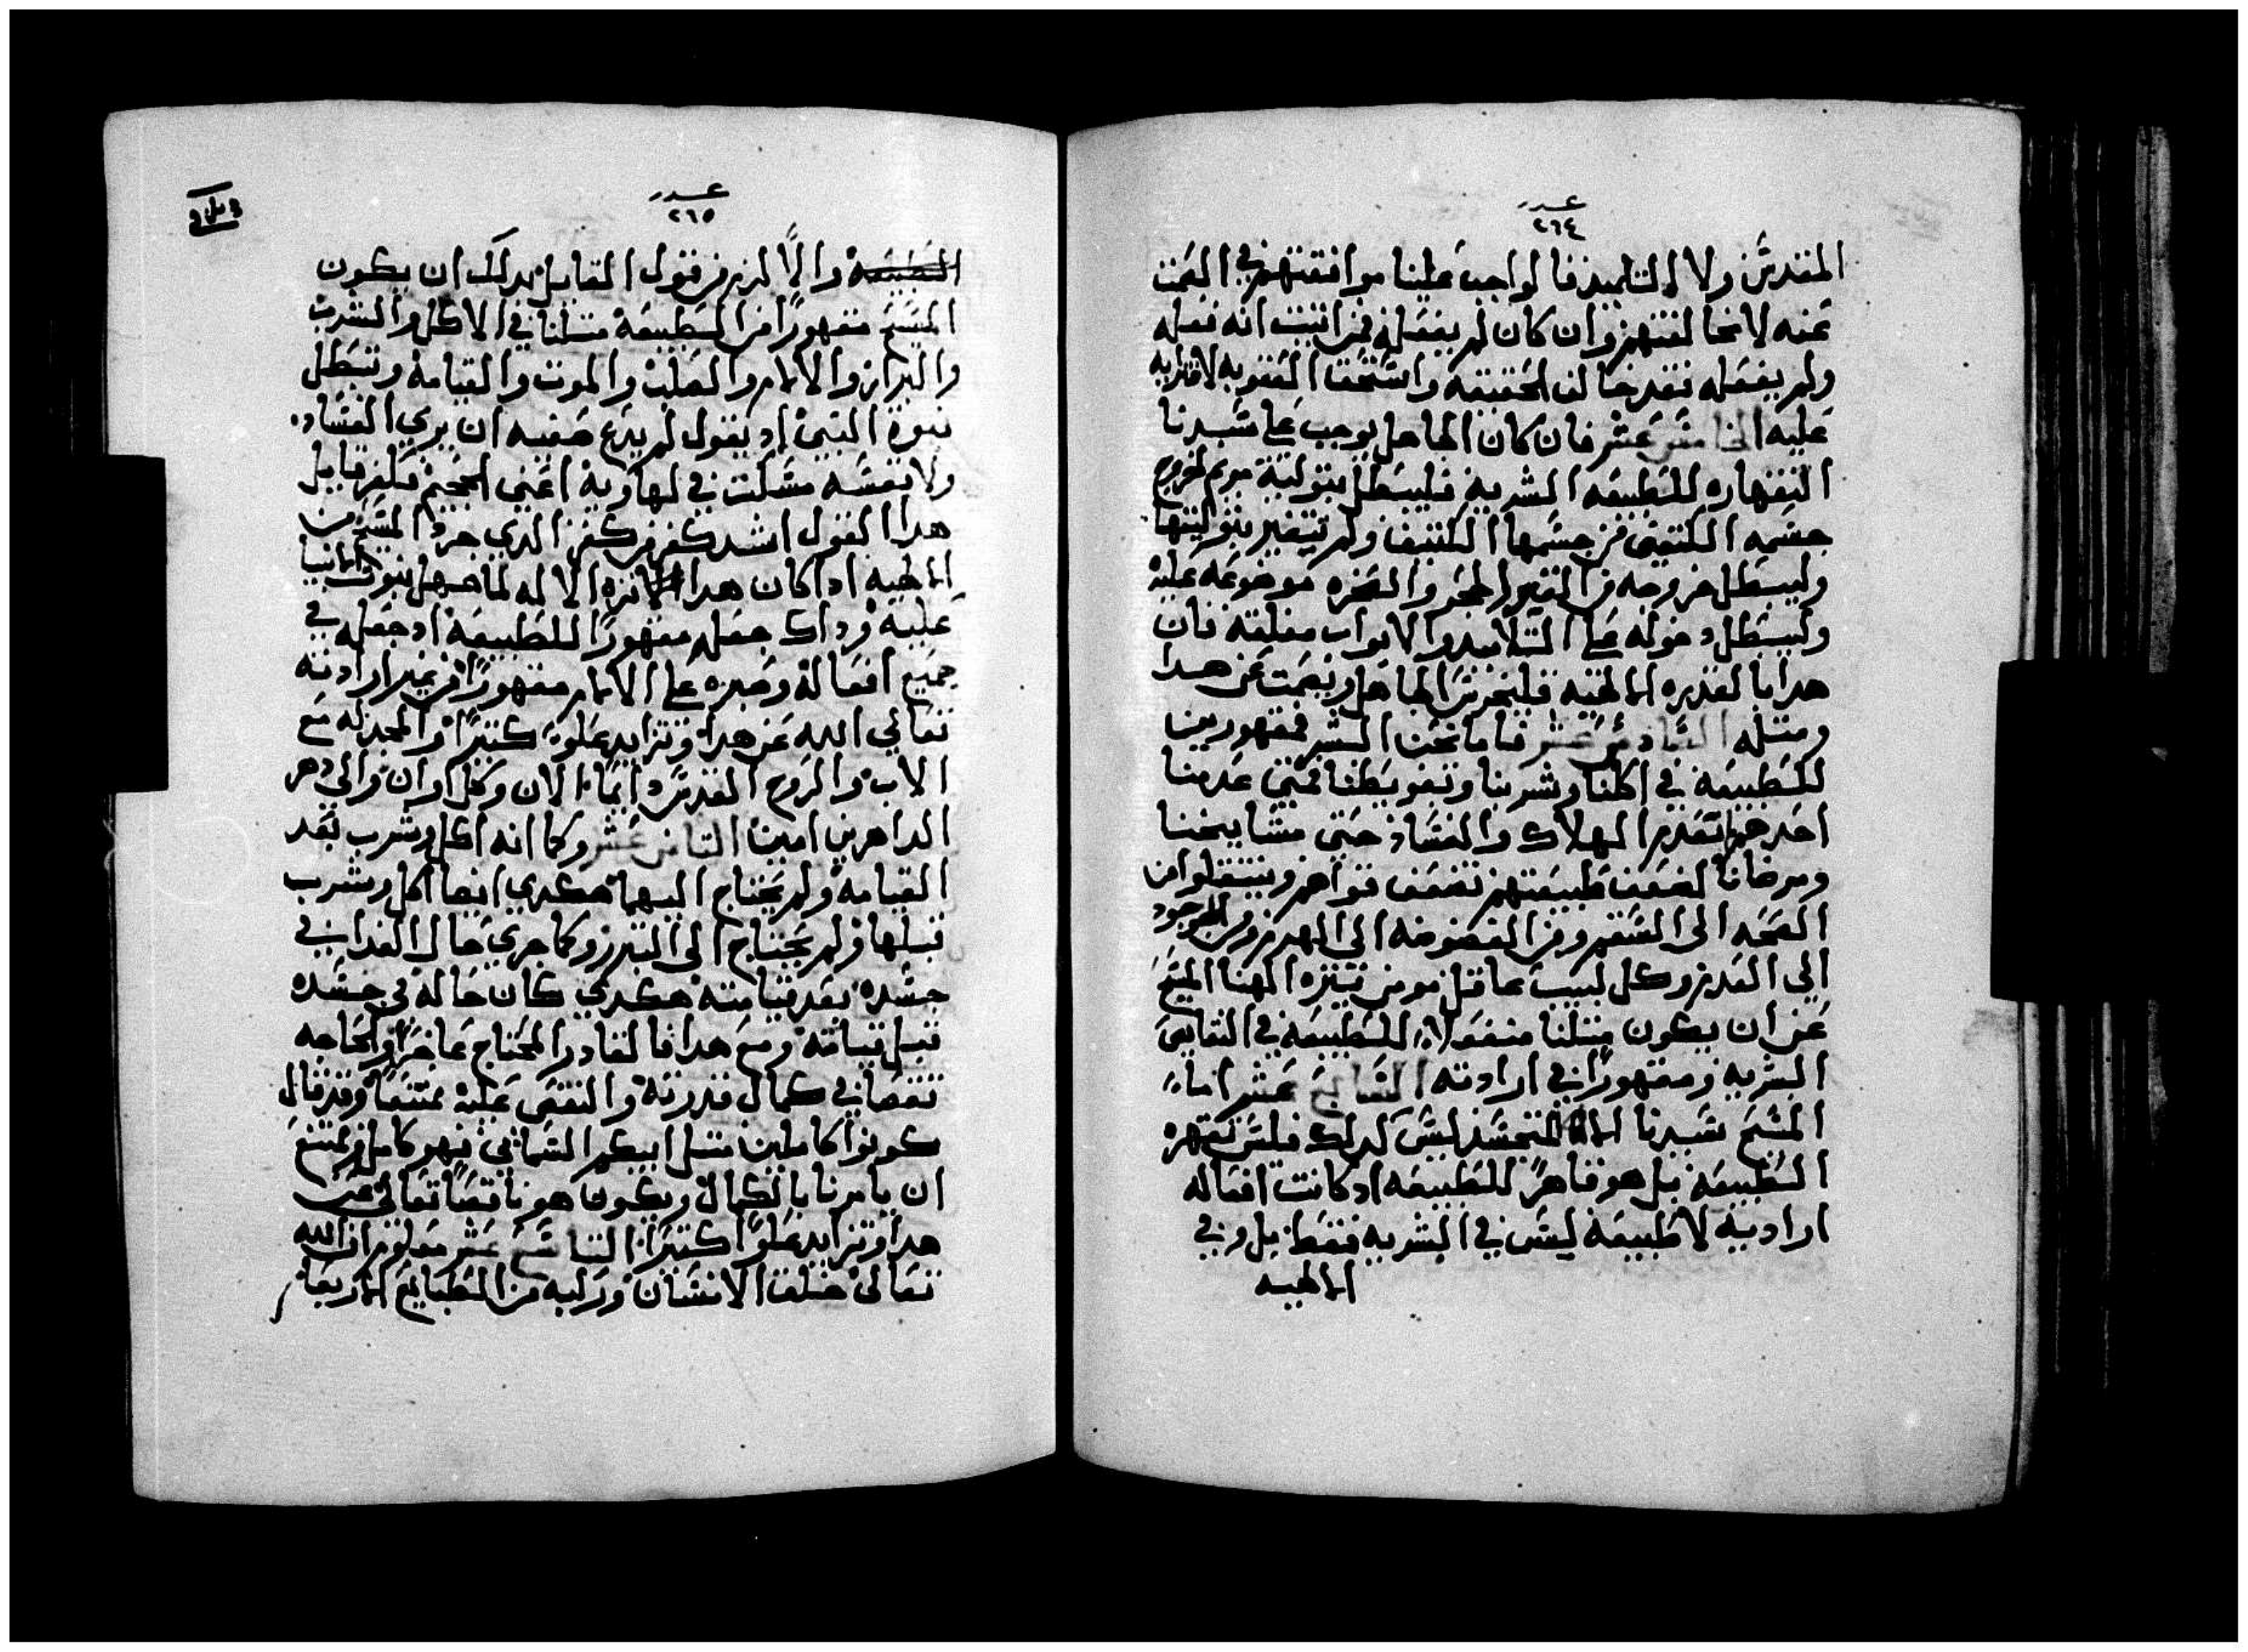 عدد
٢٦٤
المقدس ولا التلاميذ فالواجب علينا موافقتهم في الصمت
عنه لا مخالفتهم وان كان لم يفعله فمن اتبت انه فعله
ولم يفعله فقد خالف الحقيقه واستحق العقوبه لافترايه
عليه الخامس عشر فان كان الجاهل يوجب على سيدنا
انقهاره للطبيعه البشريه فليبطل بتولية مريم لخروج
جسمه الكتيف من جسمها الكتيف ولم تتغير بتوليتها
وليبطل خروجه من القبر المختوم والصخره موضوعه عليه
وليبطل دخوله على التلاميد والابواب مغلقه فان
هدا بالقدره الالهيه فليخرس الجاهل ويصمت عن هدا
ومتله السادس عشر فاما نحن البشر فمقهورين
للطبيعه في اكلنا وشربنا وتغويطنا فمتى عدمنا
احدهم الهلاك والفساد حتى مشايخنا
ومرضانا لضعف طبيعتهم تضعف قواهم وينتقلوا من
الصحه الى السقم ومن الى الهرم ومن الوجود
الى العدم وكل لبيب عاقل مومن ينزه الهنا المسيح
عن ان يكون متلنا منفعلا للطبيعه في النقايص
البشريه ومقهورًا في ارادته السابع عشر اما
المسيح سيدنا المتجسد ليس كدلك فليس تقهره
الطبيعه بل هو قاهرً للطبيعه اد كانت افعاله
اراديه لا طبيعه ليس في البشريه فقط بل وفي
الالهيه
عدد
٢٦٥
الطبيعه والا لزم من قول القايل بدلك ان يكون
المسيح مقهورًا من الطبيعه متلنا في الاكل والشرب
والبراز والالام والصلب والموت والقيامه وتبطل
نبوة النبي اد يقول لم يدع صفيه ان يري الفساد
ولا نفسه مسكت في الهاويه اعني الجحيم فكفر قايل
هدا القول اشد كفر من كفر الدي جرد المسيح من
الالهيه اداكان هدا نزه الاله لما جهل بنبوت الانبيا
عليه وداك جعله مقهورًا للطبيعه اد جعله في
جميع افعاله وصبره على الالام مقهورًا من غير ارادته
تعالي الله عن هدا وتزايد علوًا كتيرًا والمجد له مع
الاب والروح القدس دايمًا الان وكل اوان والى دهر
الداهرين امين التامن عشر وكما انه اكل وشرب بعد
القيامه ولم يحتاج اليهما هكدي ايضا اكل وشرب
قبلها ولم يحتاج الى التبرز وكما جري حال الغدا في
جسده بعد قيامته هكدي كان حاله في جسده
قبل قيامته ومع هدا فالقادر المحتاج عاجزًا والحاجه
نقصا في كمال قدرته والنقص عليه ممتنعًا وقد قال
كونوا كاملين متل ابيكم السماي فهو كامل فممتنع
ان يامرنا بالكمال ويكون هو ناقصًا تعالى عن
هدا وتزايد علوًا كتيرًا التاسع عشر معلوم ان الله
تعالى خلق الانسان وركبه من الطبايع الاربعه